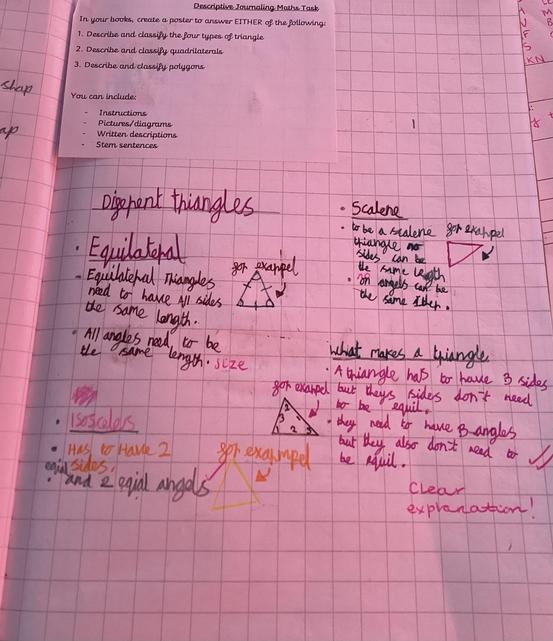 Descriptive Journaling Maths Task
In your books, create a poster to answer EITHER of the following:
1. Describe and classify the four types of triangle
2. Describe and classify quadrilaterals
3. Describe and classify polygons
You can include:
- Instructions
- Pictures/diagrams
- Written descriptions
- Stem sentences
shap
ap
KN
Digerent triangles
• Equilateral
- Equilateral Triangles
need to have All sides
the same length.
for exampel
• All angles need to be
the same length. size
• Isoscelers
• Has to Have 2
equal sides.
• and 2 eqial angels
for exampel
• Scalene
• to be a scalene
triangle no
sides can be
the same length
• on angels can be
the same Ither.
for exampel
What makes a triangle
• A triangle has to have 3 sides
but theys sides don't need
to be equil.
for exampel
1 2 3
1 2 3
• they need to have 3 angles
but they also don't need to
be equil.
Clear
explanation!